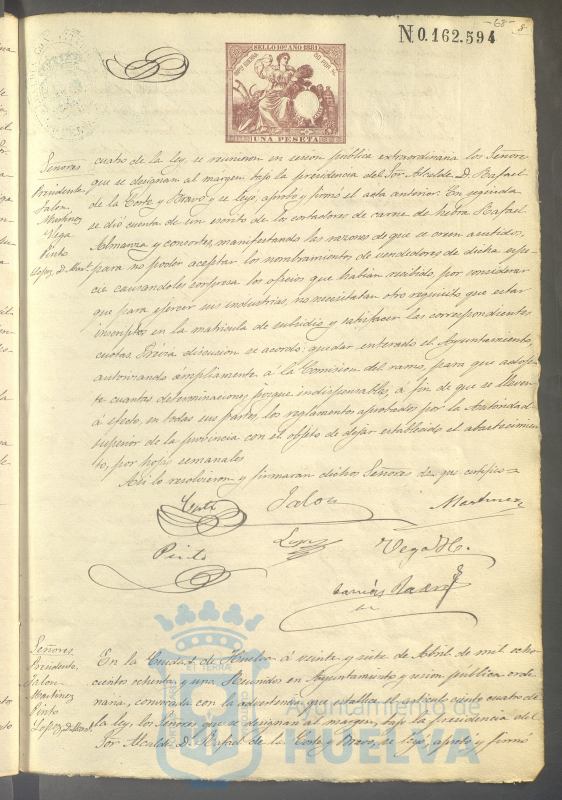 68
8
N.0.162.594
SELLO 10º AÑO 1881
UNA PESETA
Señores
Presidente
Jalon
Martinez
Vega
Pinto
Lopez, D. Mart.
cuatro de la ley, se reunieron en sesion pública extraordinaria los Señores
que se designan al margen bajo la presidencia del Sor. Alcalde D. Rafael
de la Corte y Bravo y se leyó, aprobó y firmó el acta anterior. En seguida
se dió cuenta de un escrito de los cortadores de carne de hebra Rafael
Almanza y consortes, manifestando las razones de que se creen asistidos,
para no poder aceptar los nombramientos de vendedores de dicha espe-
cie causandoles sorpresa los oficios que habian recibido, por considerar
que para ejercer sus industrias, no necesitaban otro requisito que estar
inscriptos en la matricula de subsidio y satisfacer las correspondientes
cuotas. Prévia discusion se acordó: quedar enterado el Ayuntamiento,
autorizando ámpliamente á la Comision del ramo, para que adop-
te cuantas determinaciones juzgue indispensables, á fin de que se lleven
á efecto, en todas sus partes, los reglamentos aprobados por la Autoridad
superior de la provincia con el objeto de dejar establecido el abastecimien-
to, por hojas semanales.
Asi lo resolvieron y firmaran dichos Señores de que certifico=
Corte
Jalon
Martinez
Pinto
Lopez
Vega H.
Señores
Presidente
Jalon
Martinez
Pinto
Lopez, D. Mart.
En la Ciudad de Huelva á veinte y siete de Abril de mil ocho
cientos ochenta y uno. Reunidos en Ayuntamiento y sesion pública ordi-
naria, convocada con la advertencia que detalla el artículo ciento cuatro de
la ley, los Señores que se designan al margen, bajo la presidencia del
Sor. Alcalde D. Rafael de la Corte y Bravo, se leyó, aprobó y firmó
Ayuntamiento de
HUELVA